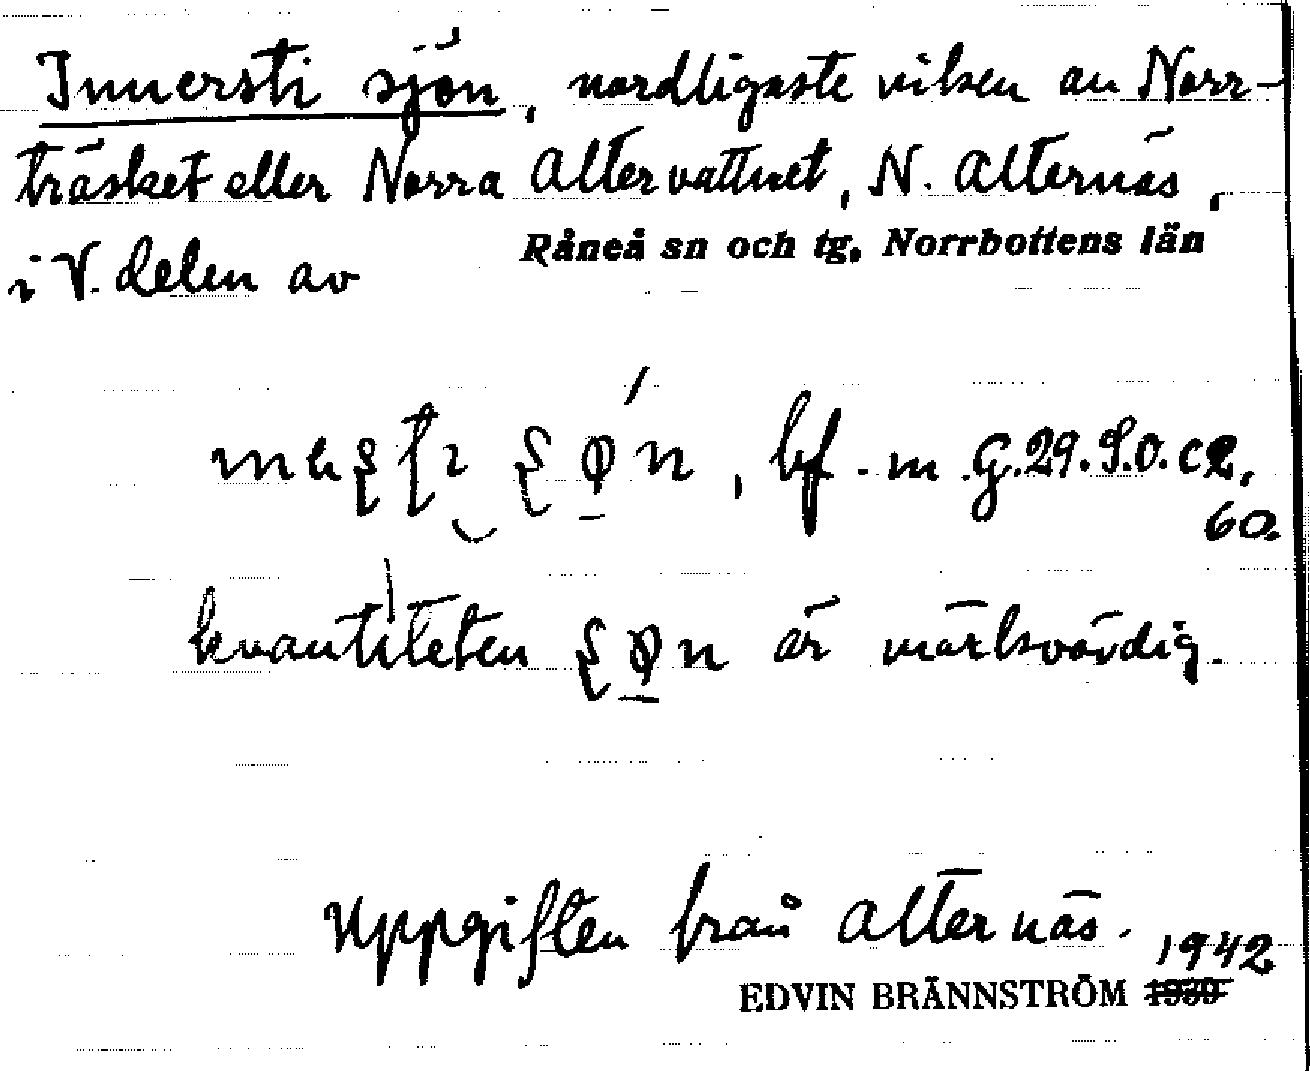 Innersti sjön, nordligaste viken av Norr-
träsket eller Norra Altervattnet, N. Alternäs,
i V. delen av Råneå sn och tg, Norrbottens län
bf. m G.29.S.O. c2,
60.
kvantiteten är märkvärdig.
Uppgiften från Alternäs.
1942
EDVIN BRÄNNSTRÖM 1939